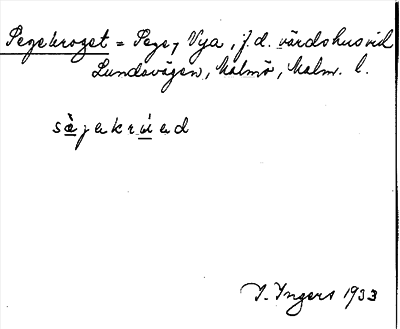 Segekroget = Sege, Nya, f.d. värdshus vid
Lundavägen, Malmö, Malm. l.
sèjekrúed
I. Ingers 1933